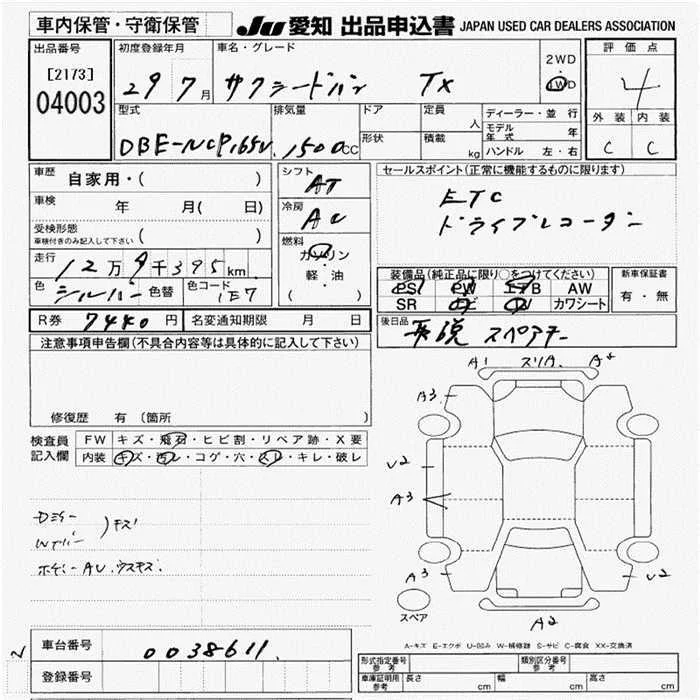 車内保管・守衛保管
JU 愛知 出品申込書 JAPAN USED CAR DEALERS ASSOCIATION
出品番号
[2173]
04003
初度登録年月
29 7月
車名・グレード
サクシードバン TX
2WD
・
4WD
評価点
4
外装 内装
C C
型式
DBE-NCP165V
排気量
1500CC
ドア
形状
定員
人
積載
kg
ディーラー・並行
モデル年式 年
ハンドル 左・右
車歴
自家用・( )
車検
年 月( 日)
受検形態
車検付きのみ記入して下さい ( )
走行
12万9千395km
色 シルバー 色替
色コード 1E7
シフト
AT
冷房
AC
燃料
ガソリン
軽・油
( )
セールスポイント(正常に機能するものに限ります)
ETC
ドライブレコーダー
装備品(純正品に限り○をつけてください)
PS PW エアB AW
SR ナビ TV カワシート
新車保証書
有・無
R券 7440円
名変通知期限 月 日
後日品
取説 スペアキー
注意事項申告欄(不具合内容等は具体的に記入して下さい)
修復歴 有(箇所 )
検査員
記入欄
FW キズ・飛石・ヒビ割・リペア跡・X要
内装 キズ・汚レ・コゲ・穴・スレ・キレ・破レ
キズ
ボデー AU. ウスキズ.
A1 スリA. A4
A3
U2
A3
A3
U2
A2
スペア
A-キズ E-エクボ U-凹み W-補修跡 S-サビ C-腐食 XX-交換済
2
車台番号
0038611
登録番号
形式指定番号
参考
類別区分番号
参考
車庫証明用
参考
長さ cm 幅 cm 高さ cm